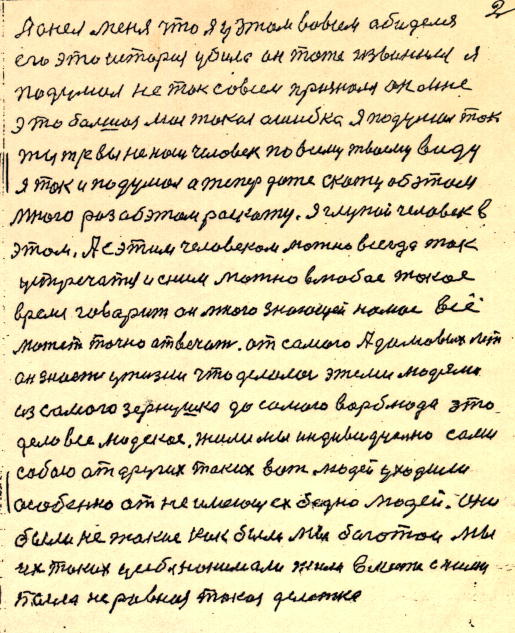 2
Донел меня что я у этом вовсем абиделя
его это история убила он тоже извинил я
подумал не так совсем признал он мне
это балшая моя такая ошибка я подумал ток
жи три вы не наш человек по всиму твоему виду
я ток и подумал а тепер даже скажу об этом
много раз абэтом раскажу. Я глупой человек в
этом. А сэтим человеком можно всегда так
устречатя и сним можно влюбое такое
время говорит он много знающей намое всё
может точно отвечат. от самого Адамовых лет
он знает у жизни что делолос этими людями
из самого зернушка до самого варблюда это
дело все людское. жили мы индивидуално сами
собою от других таких вот людей уходили
особенно от не имеющех бедно людей. они
были не такие как были мы богатои мы
их таких у себя нонимали жили вмести сними
пошла не равная такая делотка